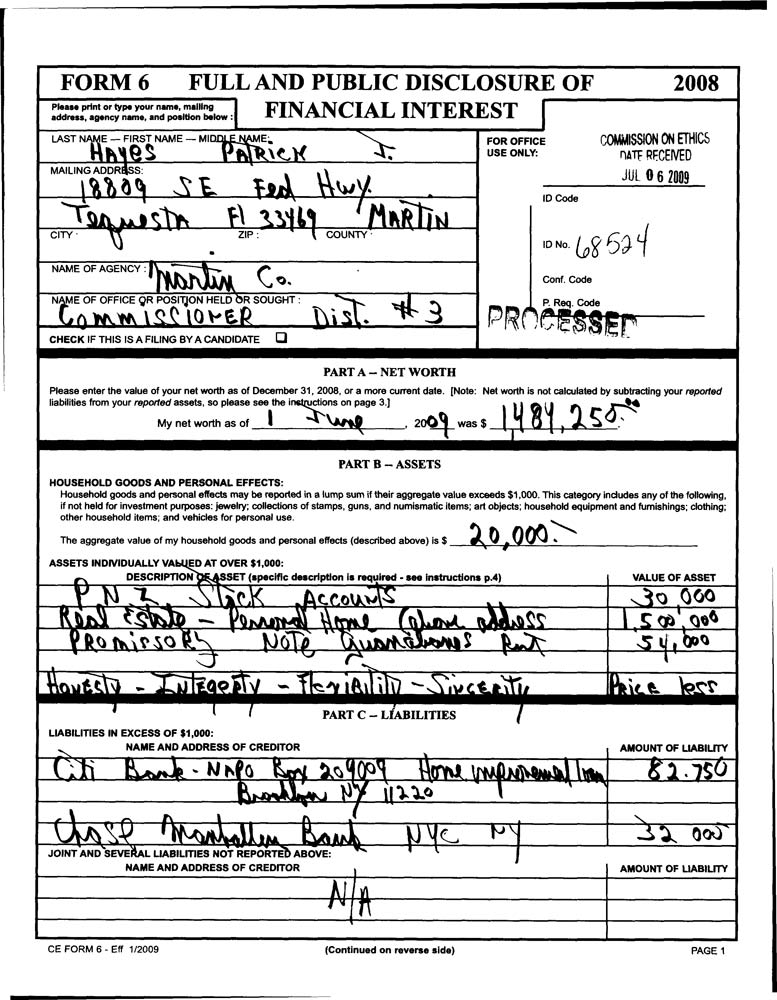 FORM 6 FULL AND PUBLIC DISCLOSURE OF 2008
Please print or type your name, mailing
address, agency name, and position below :
FINANCIAL INTEREST
LAST NAME — FIRST NAME — MIDDLE NAME:
HAYES PATRICK J.
MAILING ADDRESS:
18809 SE Fed Hwy.
Tequesta Fl 33469 MARTIN
CITY : ZIP : COUNTY :
NAME OF AGENCY : Martin Co.
NAME OF OFFICE OR POSITION HELD OR SOUGHT :
COMMISSIONER Dist. # 3
CHECK IF THIS IS A FILING BY A CANDIDATE
FOR OFFICE
USE ONLY:
COMMISSION ON ETHICS
DATE RECEIVED
JUL 06 2009
ID Code
ID No. 68524
Conf. Code
P. Req. Code
PROCESSED
PART A – NET WORTH
Please enter the value of your net worth as of December 31, 2008, or a more current date. [Note: Net worth is not calculated by subtracting your reported
liabilities from your reported assets, so please see the instructions on page 3.]
My net worth as of 1 June , 2009 was $ 1,484,250.00
PART B – ASSETS
HOUSEHOLD GOODS AND PERSONAL EFFECTS:
Household goods and personal effects may be reported in a lump sum if their aggregate value exceeds $1,000. This category includes any of the following,
if not held for investment purposes: jewelry; collections of stamps, guns, and numismatic items; art objects; household equipment and furnishings; clothing;
other household items; and vehicles for personal use.
The aggregate value of my household goods and personal effects (described above) is $ 20,000.
ASSETS INDIVIDUALLY VALUED AT OVER $1,000:
DESCRIPTION OF ASSET (specific description is required - see instructions p.4) VALUE OF ASSET
Stock ACCOUNTS 30 000
Real Estate – Personal Home (above address 1,500,000
PROMISSORY NOTE 54,000
HONESTY - INTEGERTY - Flexibility - SINCERITY Price less
PART C – LIABILITIES
LIABILITIES IN EXCESS OF $1,000:
NAME AND ADDRESS OF CREDITOR AMOUNT OF LIABILITY
Citi Bank - Box 209009 Home improvement loan 82.750
Brooklyn NY 11220
Chase Manhatten Bank NYC NY 32 000
JOINT AND SEVERAL LIABILITIES NOT REPORTED ABOVE:
NAME AND ADDRESS OF CREDITOR AMOUNT OF LIABILITY
N/A
CE FORM 6 - Eff 1/2009 (Continued on reverse side) PAGE 1